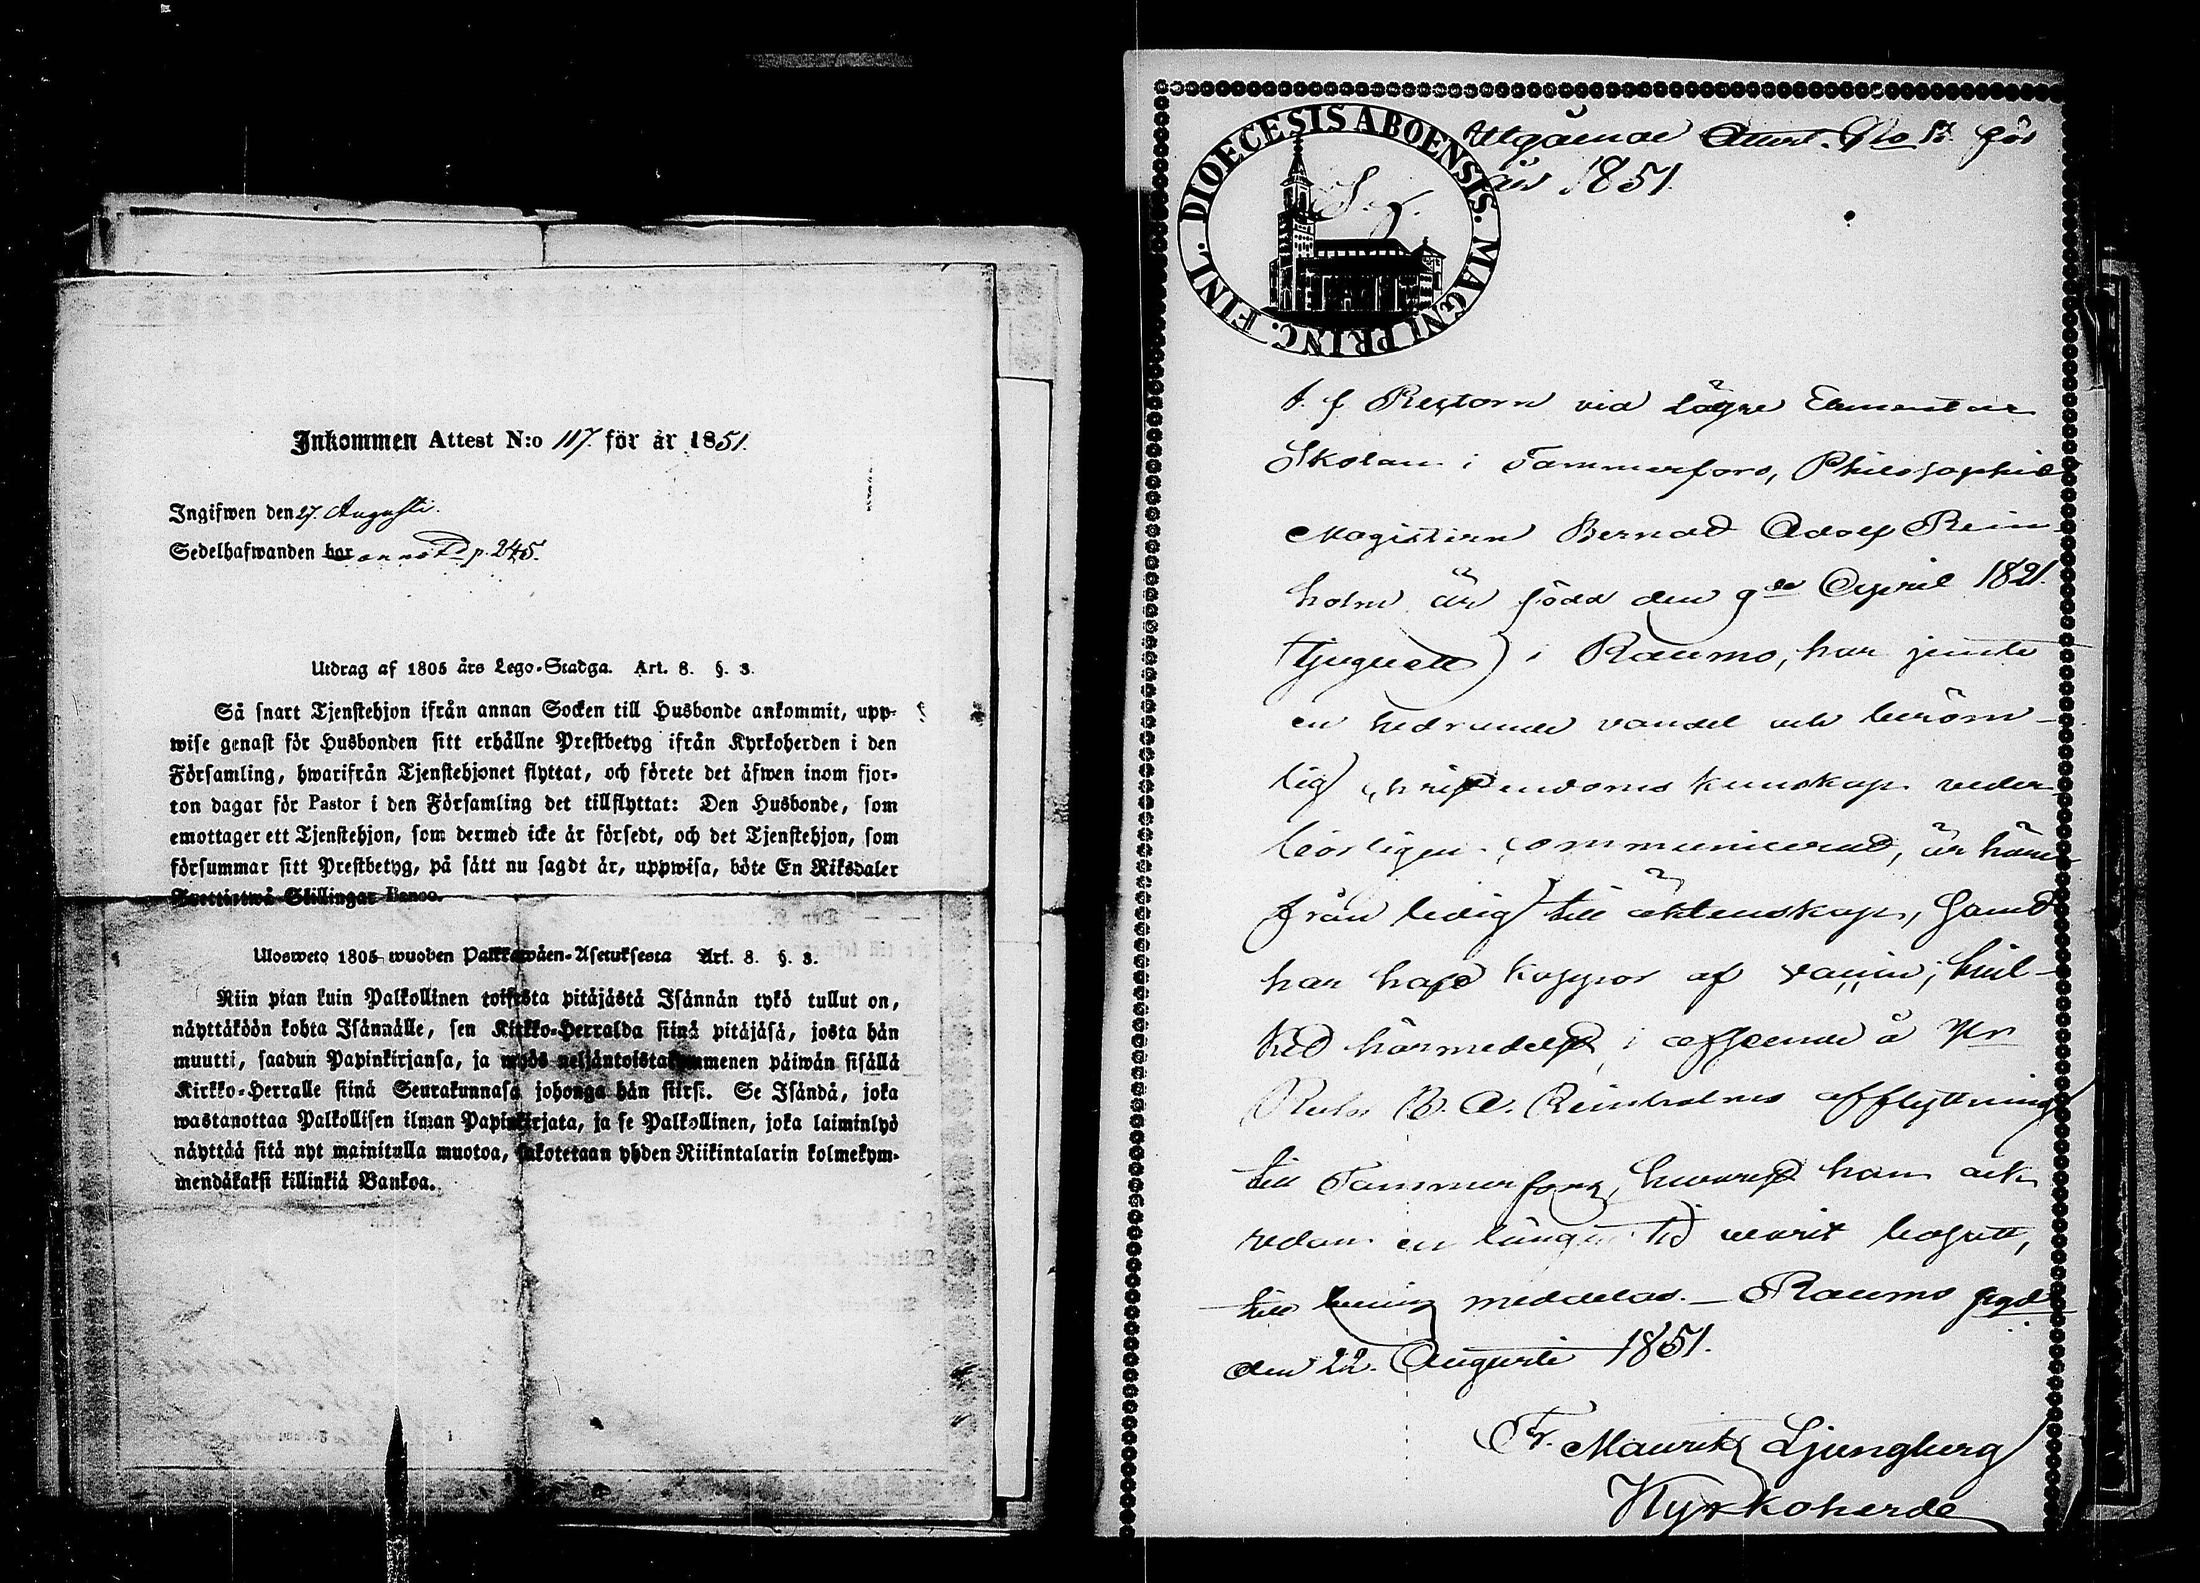 Inkommen Attest N:o 117. för år 1851.
Ingifwen den 27. Augusti.
Sedelhafwanden bor annot. p. 245.
Utdrag af 1805 års Lego-Stadga. Art. 8. §. 3.
Så snart Tjenstehjon ifrån annan Socken till Husbonde ankommit, upp-
wise genast för Husbonden sitt erhållne Prestbetyg ifrån Kyrkoherden i den
Församling, hwarifrån Tjenstehjonet flyttat, och förete det äfwen inom fjor-
ton dagar för Pastor i den Församling det tillflyttat: Den Husbonde, som
emottager ett Tjenstehjon, som dermed icke är försedt, och det Tjenstehjon, som
försummar sitt Prestbetyg, på sätt nu sagdt är, uppwisa, böte En Riksdaler
Trettiotwå Skillingar Banco.
Ulosweto 1805 wuoden Palkkawäen-Asetuksesta Art. 8. §. 3.
Niin pian kuin Palkollinen toisesta pitäjästä Isännän tykö tullut on,
näyttäköön kohta Isännälle, sen Kirkko-Herralda siinä pitäjäsä, josta hän
muutti, saadun Papinkirjansa, ja myös neljäntoistakymmenen päiwän sisällä
Kirkko-Herralle siinä Seurakunnasa johonga hän siirsi. Se Isändä, joka
wastanottaa Palkollisen ilman Papinkirjata, ja se Palkollinen, joka laiminlyö
näyttää sitä nyt mainitulla muotoa, sakotetaan yhden Riikintalarin kolmekym-
mendäkaksi killinkiä Bankoa.
DIOECESIS ABOENSIS. MAGNI PRINC. FINL.
Utgående Attest. No för
år 1851.
S. J.
t. f. Rectorn vid Lägre Elementar
Skolan i Tammerfors, Philosophie
Magistern Bernat Adolf Rein
holm är född den 9de April 1821.
(tjuguett) i Raumo, har jemte
en hedrande vandel och beröm-
lig christendoms kunskap veder
börligen communicerat, är häri
från ledig till äktenskap, samt
har haft koppor af vaccin; hvil-
ket härmedelst, i afseende å Hr
Rect. B. A. Reinholms afflyttning
till Tammerfors, hvarest han all
redan en längre tid varit bosatt,
till bevis meddelas. - Raumo pgd
den 22. Augusti 1851.
Fr. Mauritz Ljungberg
Kyrkoherde